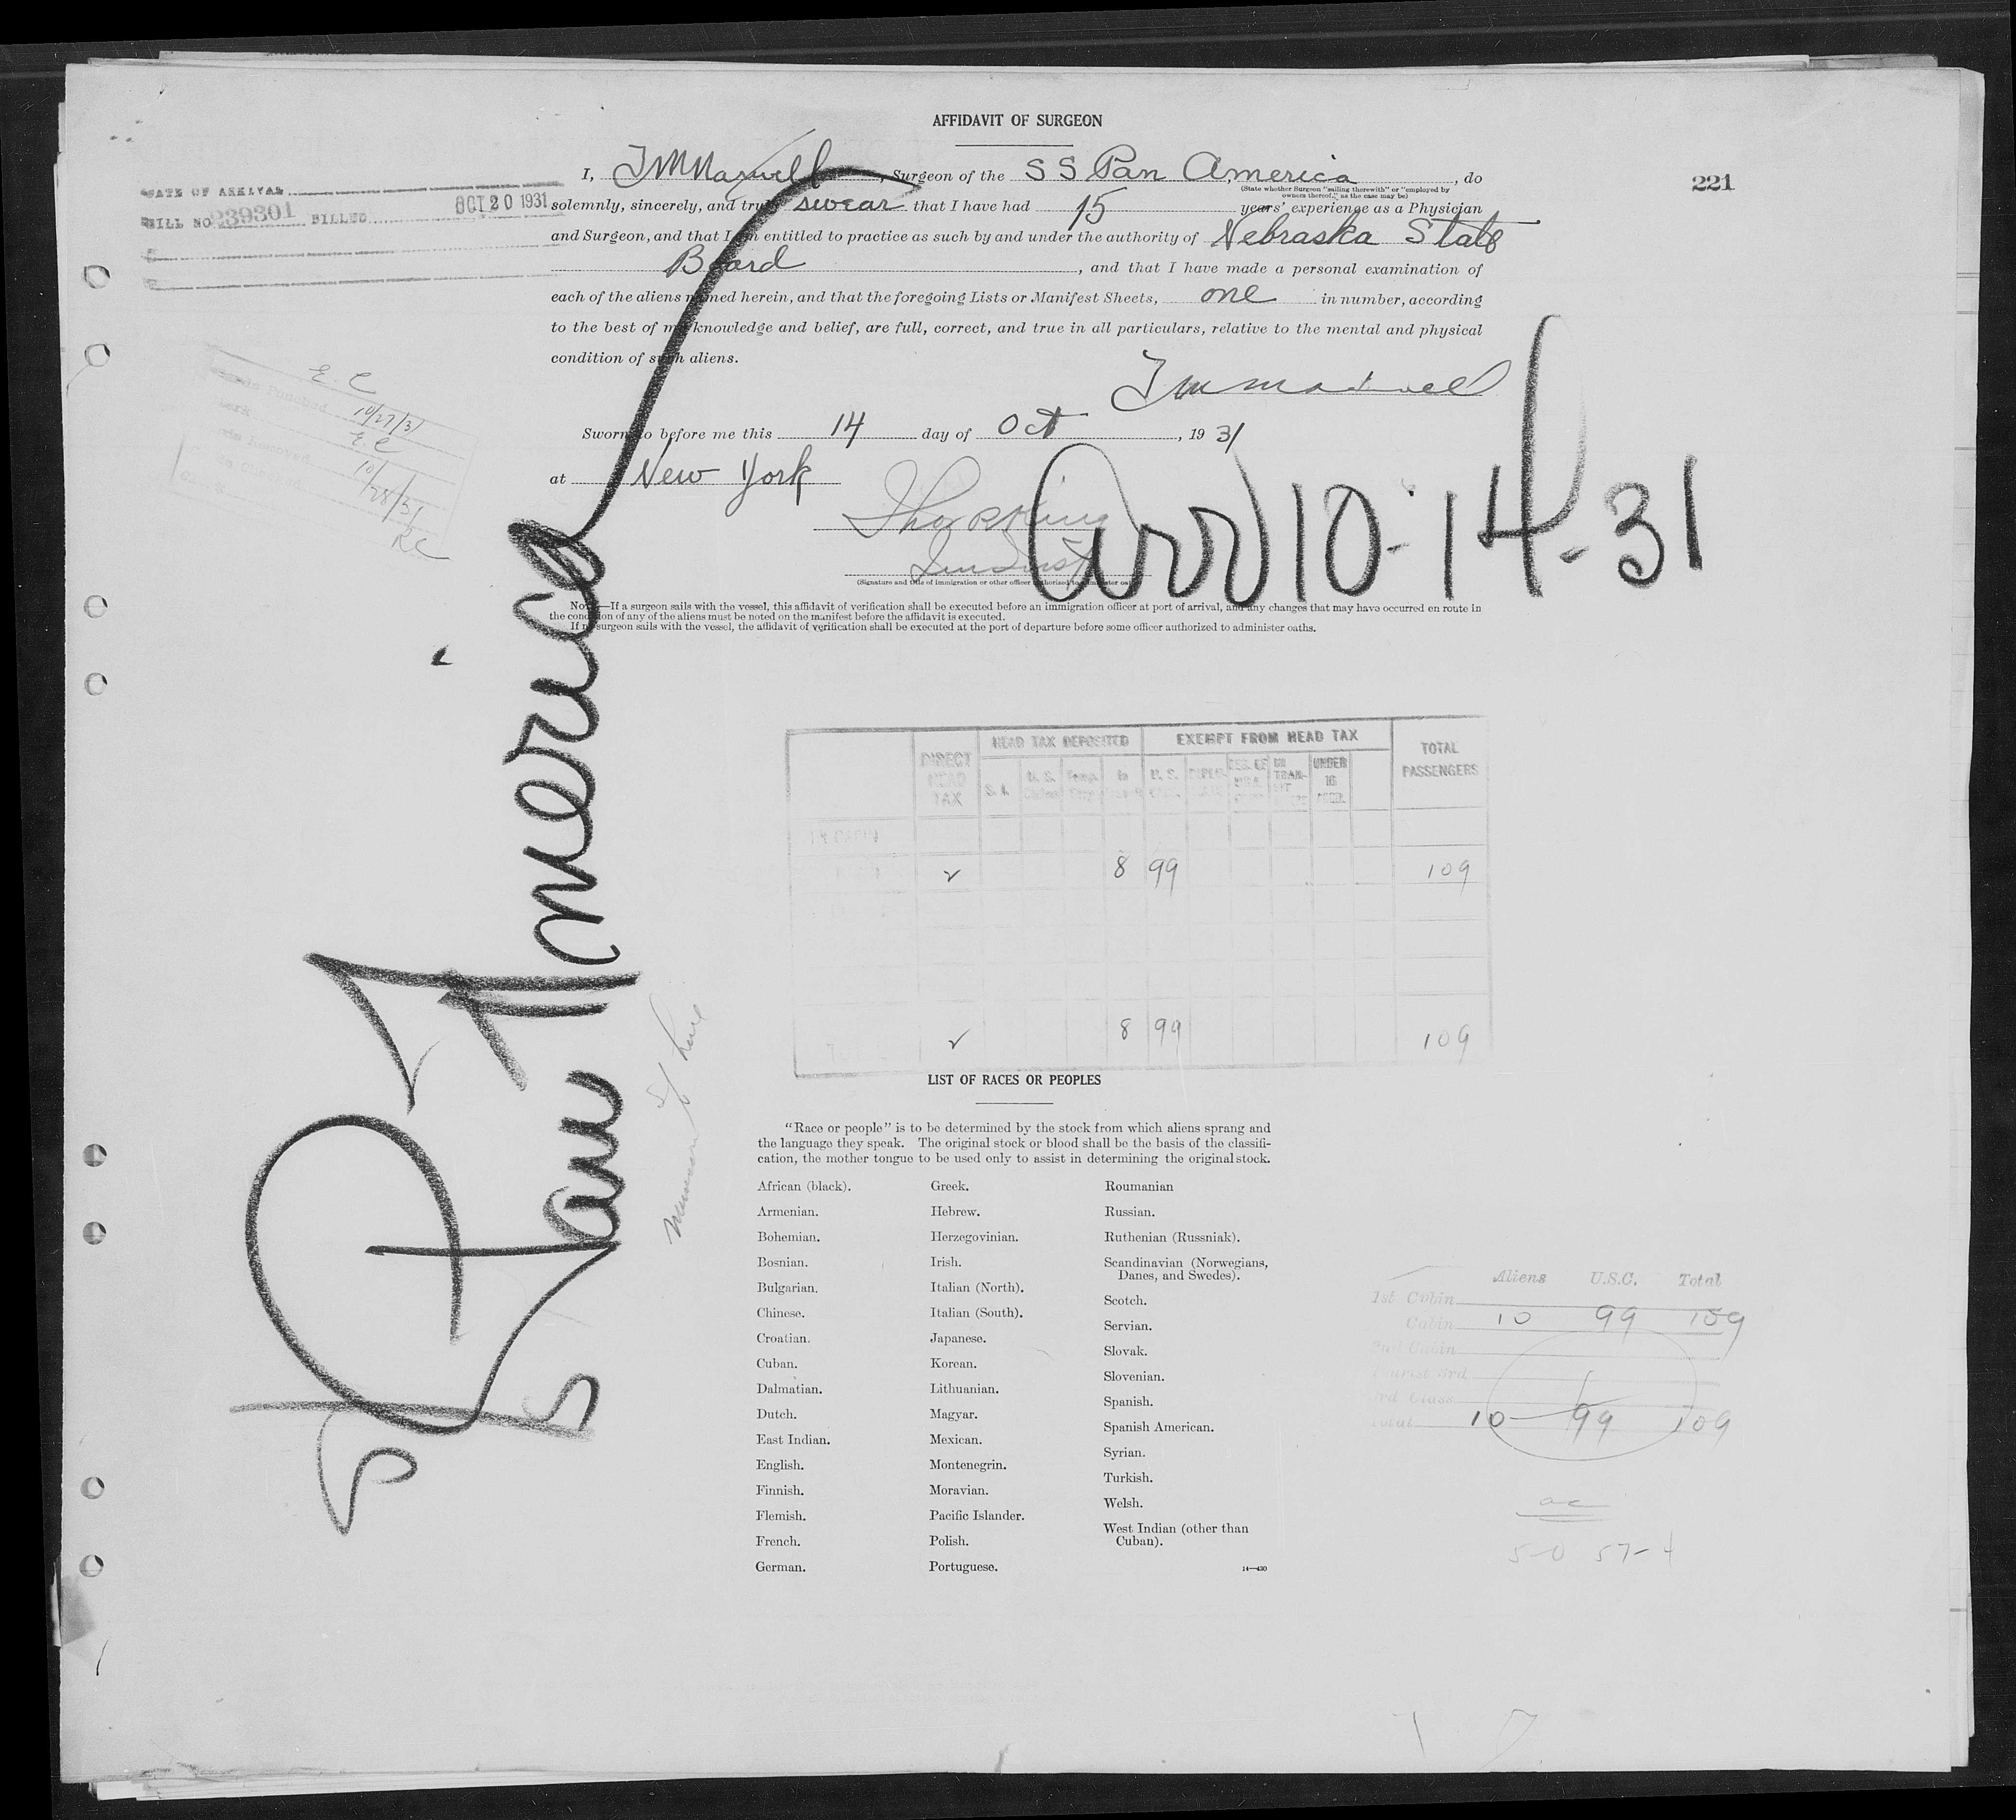 AFFIDAVIT OF SURGEON
221
I, J M Maxwell, Surgeon of the S S Pan America, do
(State whether Surgeon "sailing therewith" or "employed by
owners thereof," as the case may be)
solemnly, sincerely, and truly swear that I have had 15 years' experience as a Physician
and Surgeon, and that I am entitled to practice as such by and under the authority of Nebraska State
Board, and that I have made a personal examination of
each of the aliens named herein, and that the foregoing Lists or Manifest Sheets, one in number, according
to the best of my knowledge and belief, are full, correct, and true in all particulars, relative to the mental and physical
condition of such aliens.
J M Maxwell
Sworn to before me this 14 day of Oct, 1931
at New York
(Signature and title of immigration or other officer authorized to administer oaths)
Note.—If a surgeon sails with the vessel, this affidavit of verification shall be executed before an immigration officer at port of arrival, and any changes that may have occurred en route in
the condition of any of the aliens must be noted on the manifest before the affidavit is executed.
If no surgeon sails with the vessel, the affidavit of verification shall be executed at the port of departure before some officer authorized to administer oaths.
DATE OF ARRIVAL
BILL NO 239301 BILLED OCT 20 1931
E C
10/27/31
E C
10/28/31
RC
Arr 10-14-31
SS Pan America
DIRECT HEAD TAX
HEAD TAX DEPOSITED
EXEMPT FROM HEAD TAX
TOTAL PASSENGERS
S. I.
U. S.
In
U. S.
UNDER 16
8 99 109
8 99 109
LIST OF RACES OR PEOPLES
"Race or people" is to be determined by the stock from which aliens sprang and
the language they speak. The original stock or blood shall be the basis of the classifi-
cation, the mother tongue to be used only to assist in determining the original stock.
African (black).
Armenian.
Bohemian.
Bosnian.
Bulgarian.
Chinese.
Croatian.
Cuban.
Dalmatian.
Dutch.
East Indian.
English.
Finnish.
Flemish.
French.
German.
Greek.
Hebrew.
Herzegovinian.
Irish.
Italian (North).
Italian (South).
Japanese.
Korean.
Lithuanian.
Magyar.
Mexican.
Montenegrin.
Moravian.
Pacific Islander.
Polish.
Portuguese.
Roumanian
Russian.
Ruthenian (Russniak).
Scandinavian (Norwegians,
Danes, and Swedes).
Scotch.
Servian.
Slovak.
Slovenian.
Spanish.
Spanish American.
Syrian.
Turkish.
Welsh.
West Indian (other than
Cuban).
14—430
Aliens U.S.C. Total
1st Cabin
Cabin 10 99 109
2nd Cabin
Tourist 3rd
3rd Class
Total 10 99 109